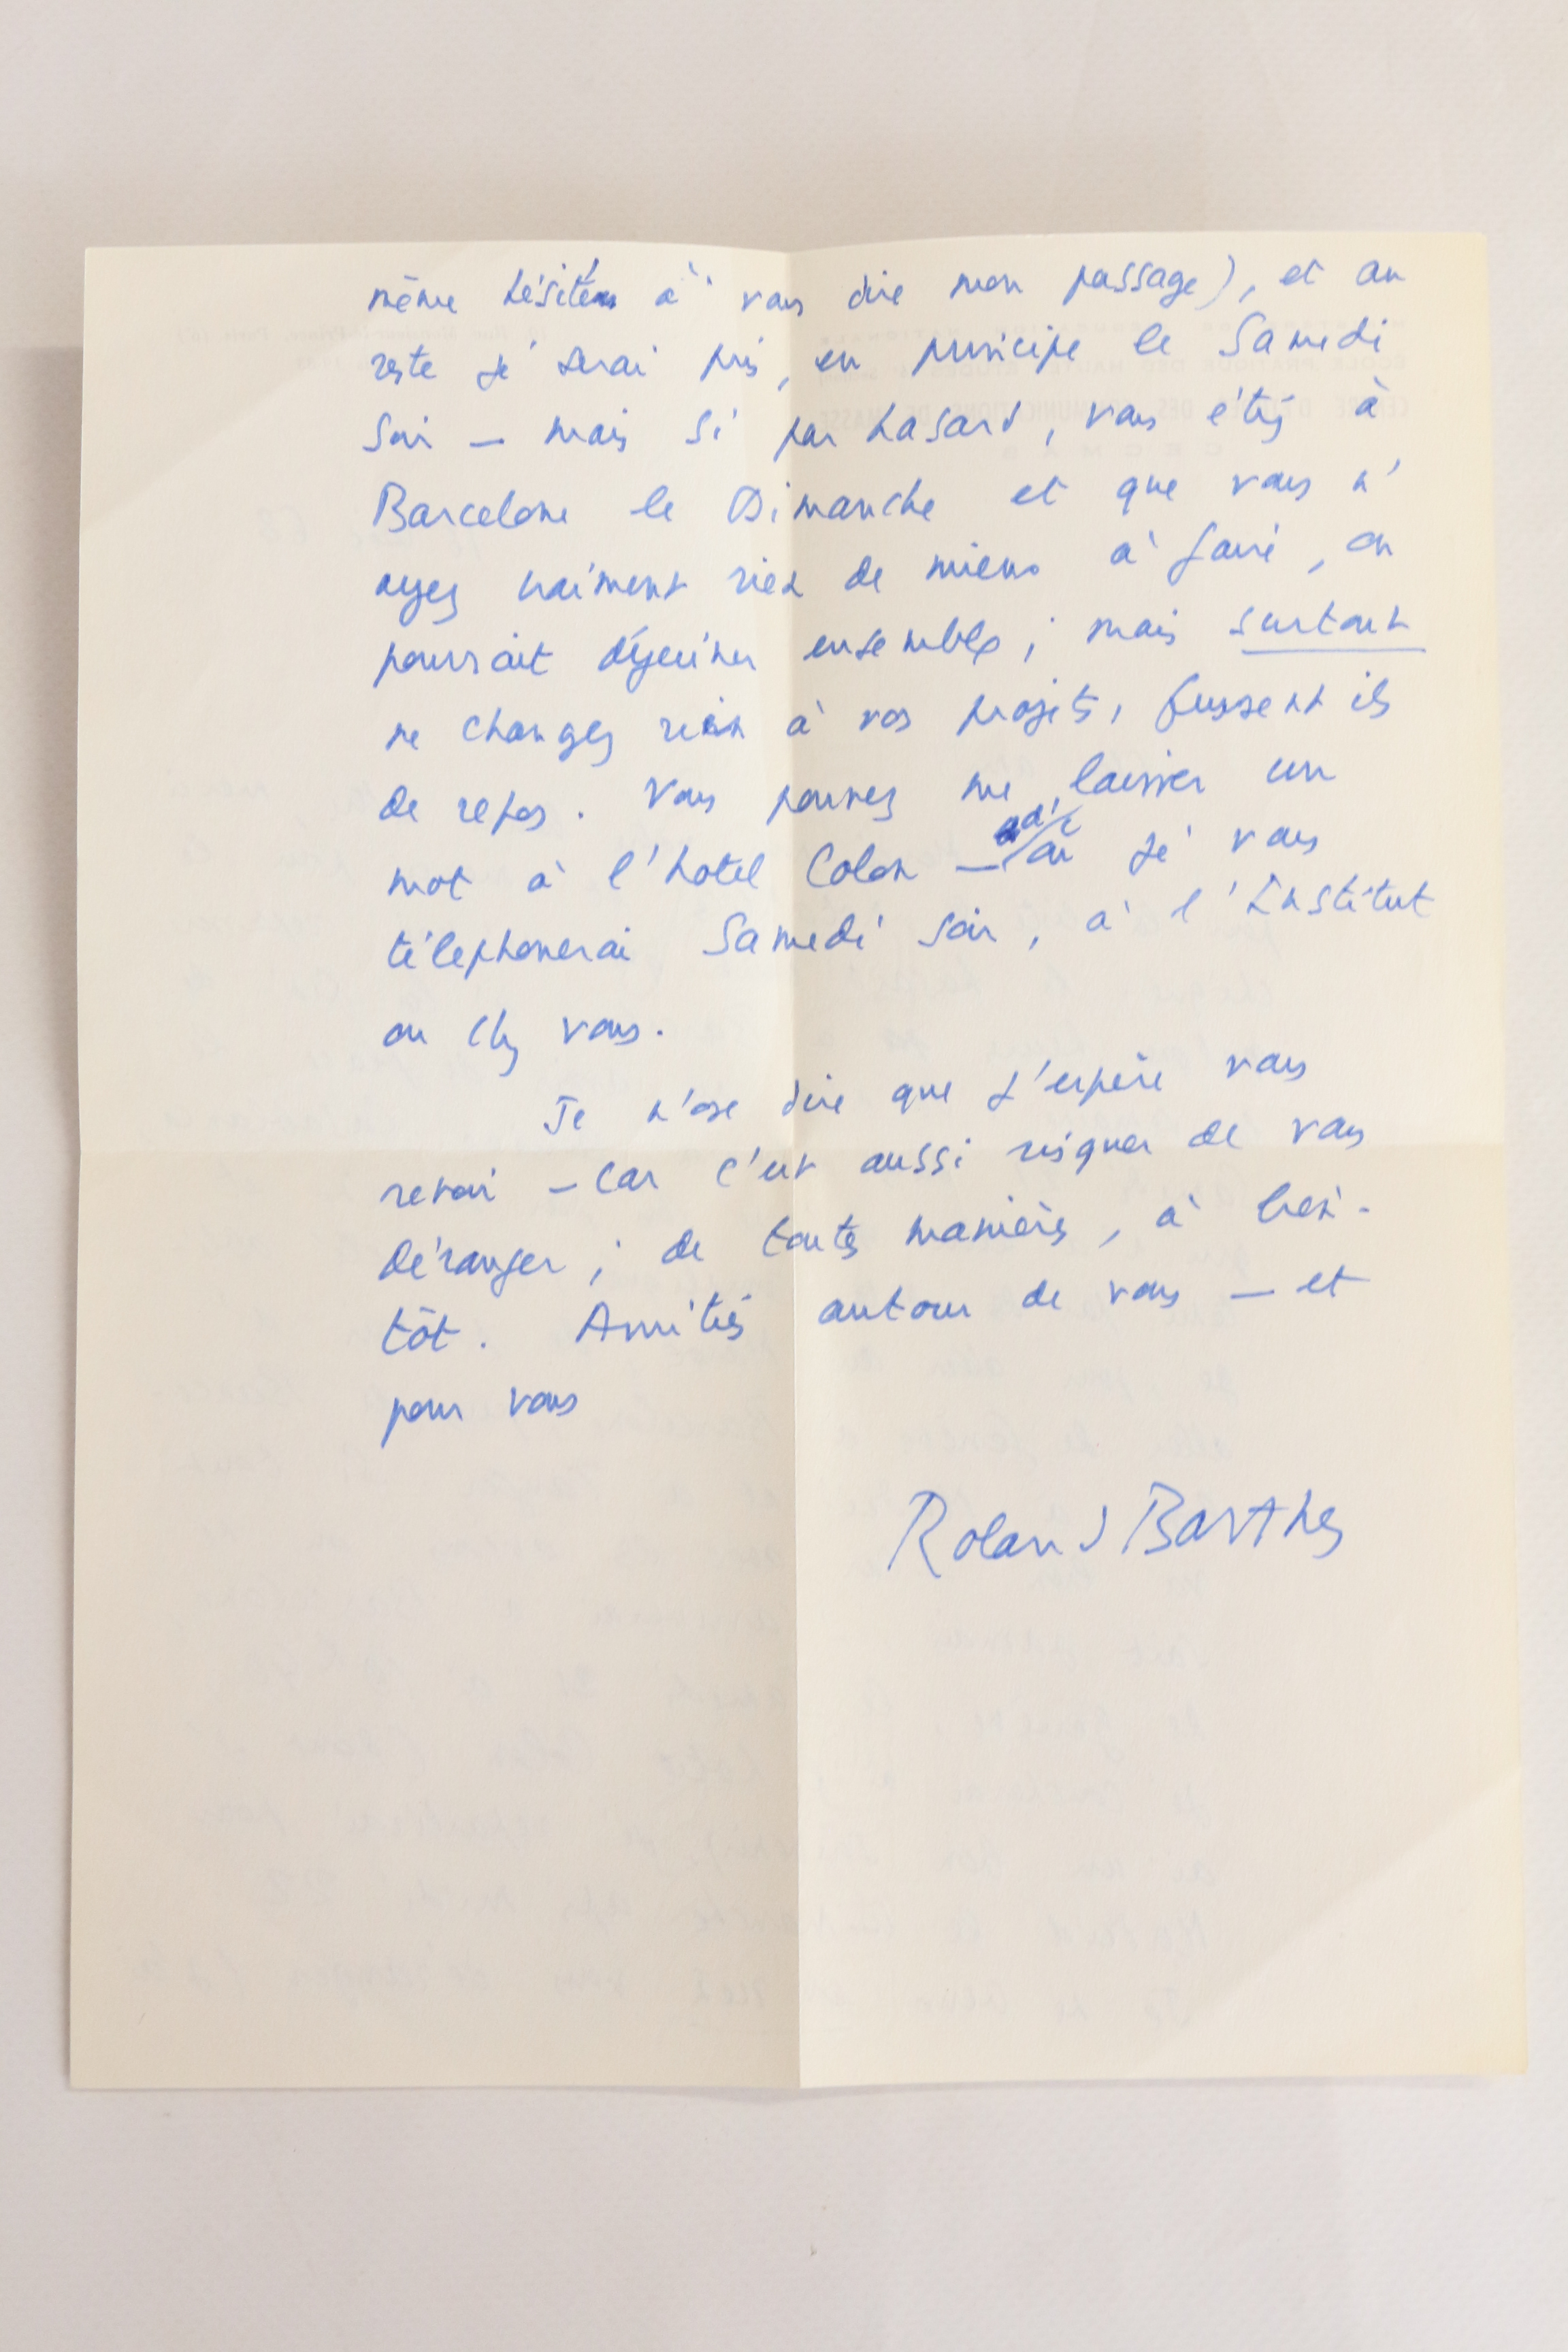 même hésité à vous dire mon passage), et au
reste je serai pris, en principe le Samedi
soir — mais si par hasard, vous étiez à
Barcelone le Dimanche et que vous n'
ayez vraiment rien de mieux à faire, on
pourrait déjeuner ensemble ; mais surtout
ne changez rien à vos projets, fussent ils
de repos. Vous pouvez me laisser un
mot à l'hotel Colon — ou je vous
téléphonerai Samedi soir, à l'Institut
ou chez vous.
Je n'ose dire que j'espère vous
revoir — car c'est aussi risquer de vous
déranger ; de toutes manières, à bien-
tôt. Amitiés autour de vous — et
pour vous
Roland Barthes